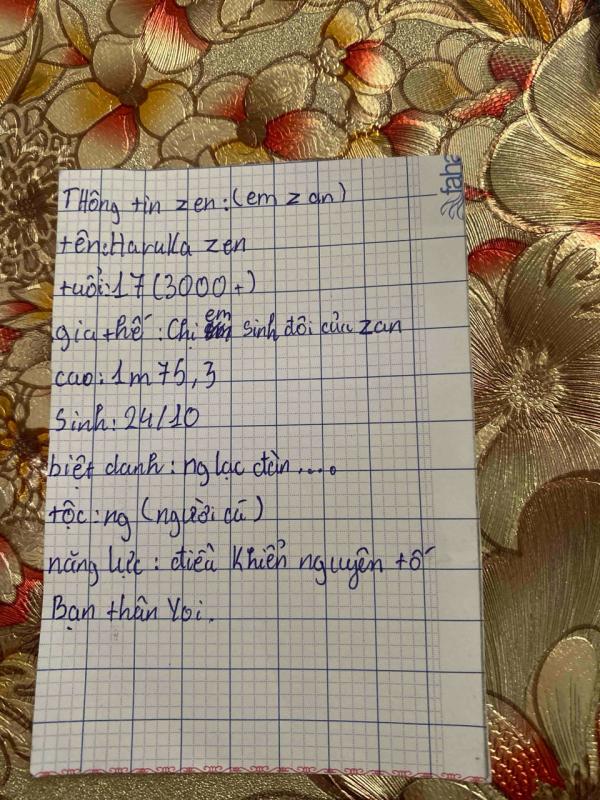 Thông tin zen:(em zan)
tên:Haruka zen
tuổi:17(3000+)
gia thế: Chị em sinh đôi của zan
cao:1m75,3
Sinh:24/10
biệt danh: ng lạc đàn....
tộc:ng (người cá)
năng lực: điều khiển nguyên tố
Bạn thân Yoi.
faha